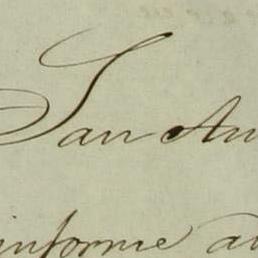 San An
informe a